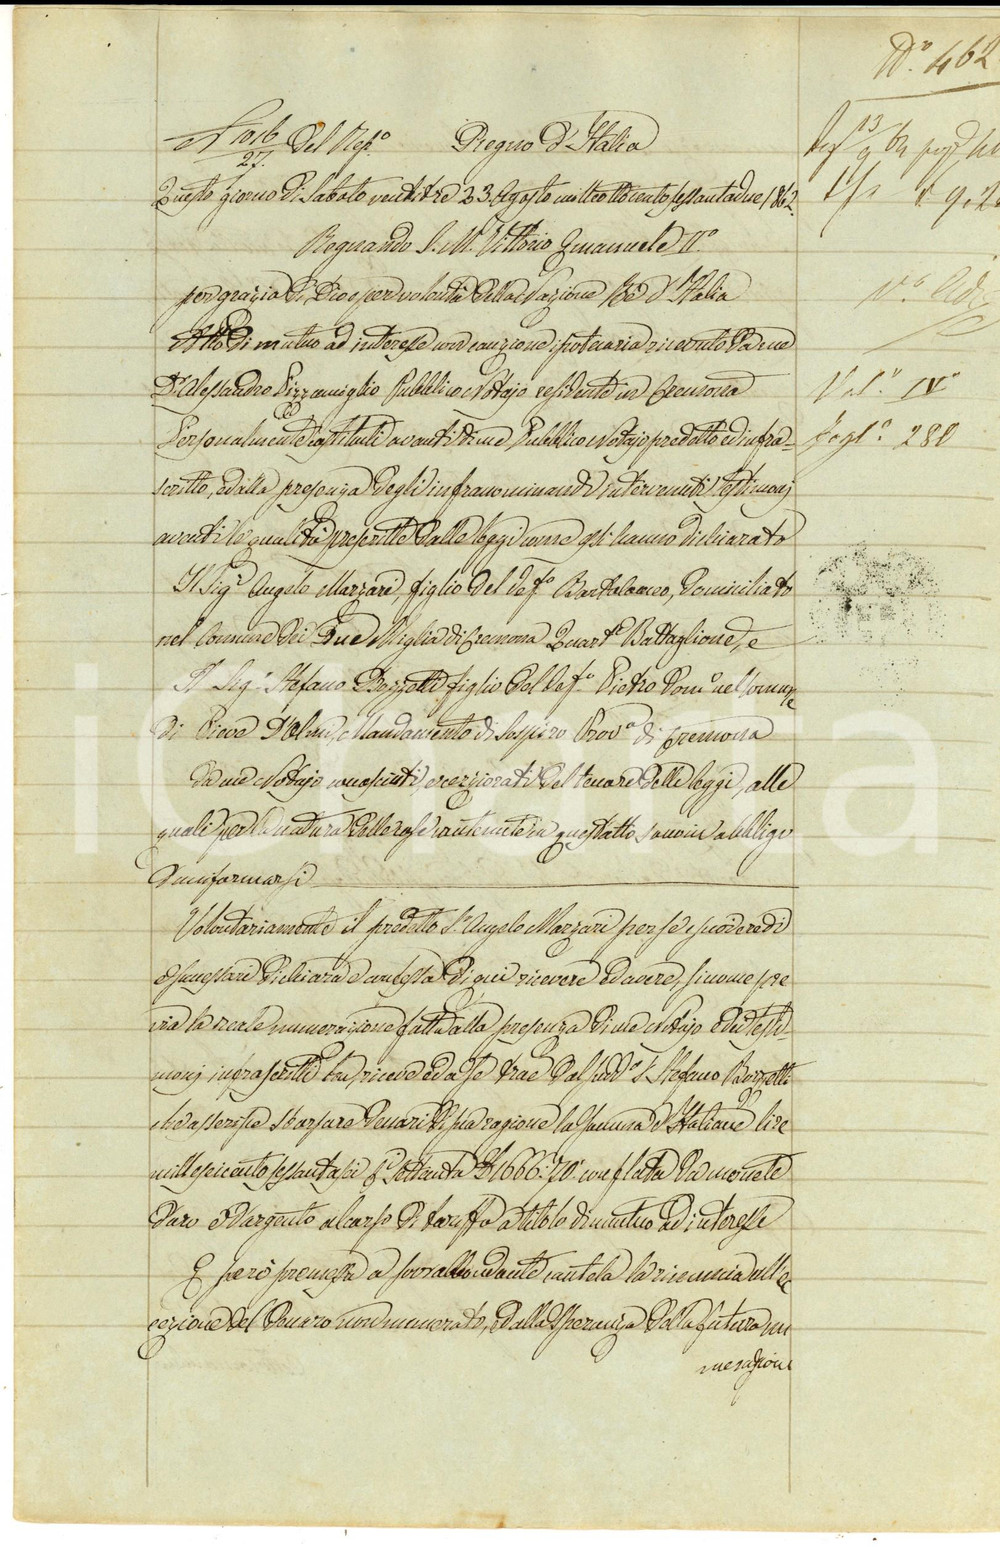 N. 462
N 1016/27 del Rep.o Regno d'Italia
Questo giorno di Sabato ventitre 23. Agosto mille ottocento sessantadue 1862.
Regnando S. M. Vittorio Emanuele II.o
per grazia di Dio e per volontà della Nazione Re d'Italia
Atto di mutuo ad interesse con cauzione ipotecaria ricevuto da me
Dr Alessandro Pizzamiglio Pubblico Notajo residente in Cremona
Vol.e IV.o
Personalmente costituiti avanti di me Pubblico Notajo predetto ed infra-
Fogl.o 280
scritto, ed alla presenza degli infranominandi intervenuti testimonj
aventi le qualità prescritte dalle leggi come essi hanno dichiarato
Il Sig.r Angelo Mazzari, figlio del def.o Bartolomeo, domiciliato
nel Comune dei Due Miglia di Cremona Quart.e Battaglione, e
Il Sig.r Stefano Bozzetti figlio del def.o Pietro dom.o nel Comune
di Pieve d'Olmi, Mandamento di Sospiro Prov.a di Cremona
da me Notajo conosciuti, e cerziorati del tenore delle leggi, alle
quali per la natura delle cose contenute in quest'atto sono in obbligo
d'uniformarsi
Volontariamente il predetto S.r Angelo Mazzari per se e suoi eredi
e successori dichiara e confessa di qui ricevere ed avere, siccome pre
via la reale numerazione fatta alla presenza di me Notajo e dei testi-
monj infrascritti ha, riceve ed a se trae dal sud.o S. Stefano Bozzetti
che asserisce sborsare denari di sua ragione la somma d'Italiane lire
mille seicento sessantasei e C.i settanta L. 1666:70 conflata da monete
d'oro e d'argento al corso di tariffa a titolo di mutuo ad interesse
E però premessa a sovrabbondante cautela la rinuncia all'ec
cezione del denaro non numerato, e dalla speranza della futura nu
merazione